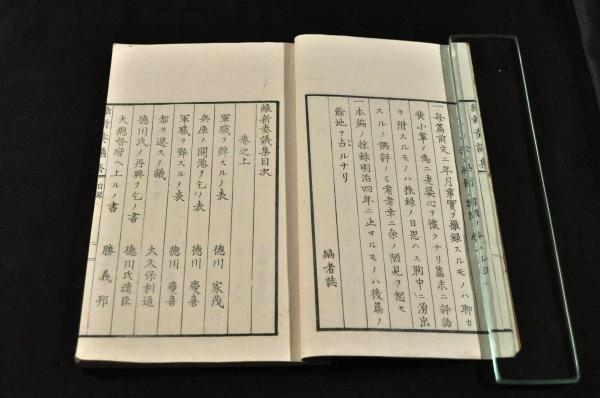 一每篇前文ニ年月事實ヲ摭録スルモノハ聊カ
黄小輩ノ爲ニ老婆心ヲ懷クナリ篇末ニ評語
ヲ附スルモノハ採録ノ日思ハス胸中ニ湧出
スルノ偶評ノミ看者幸ニ余ノ固見ヲ恕セ
一本編ノ採録明治四年ニ止マルモノハ後篇ノ
餘地ヲ占ルナリ
編者誌
維新奏議集目次
卷之上
軍職ヲ辭スルノ表 德川家茂
兵庫ノ開港ヲ乞ノ表 德川慶喜
軍職ヲ辭スルノ表 德川慶喜
都ヲ遷スノ議 大久保利通
德川氏ノ再興ヲ乞ノ書 德川氏遺臣
大總督府ヘ上ルノ書 勝義邦